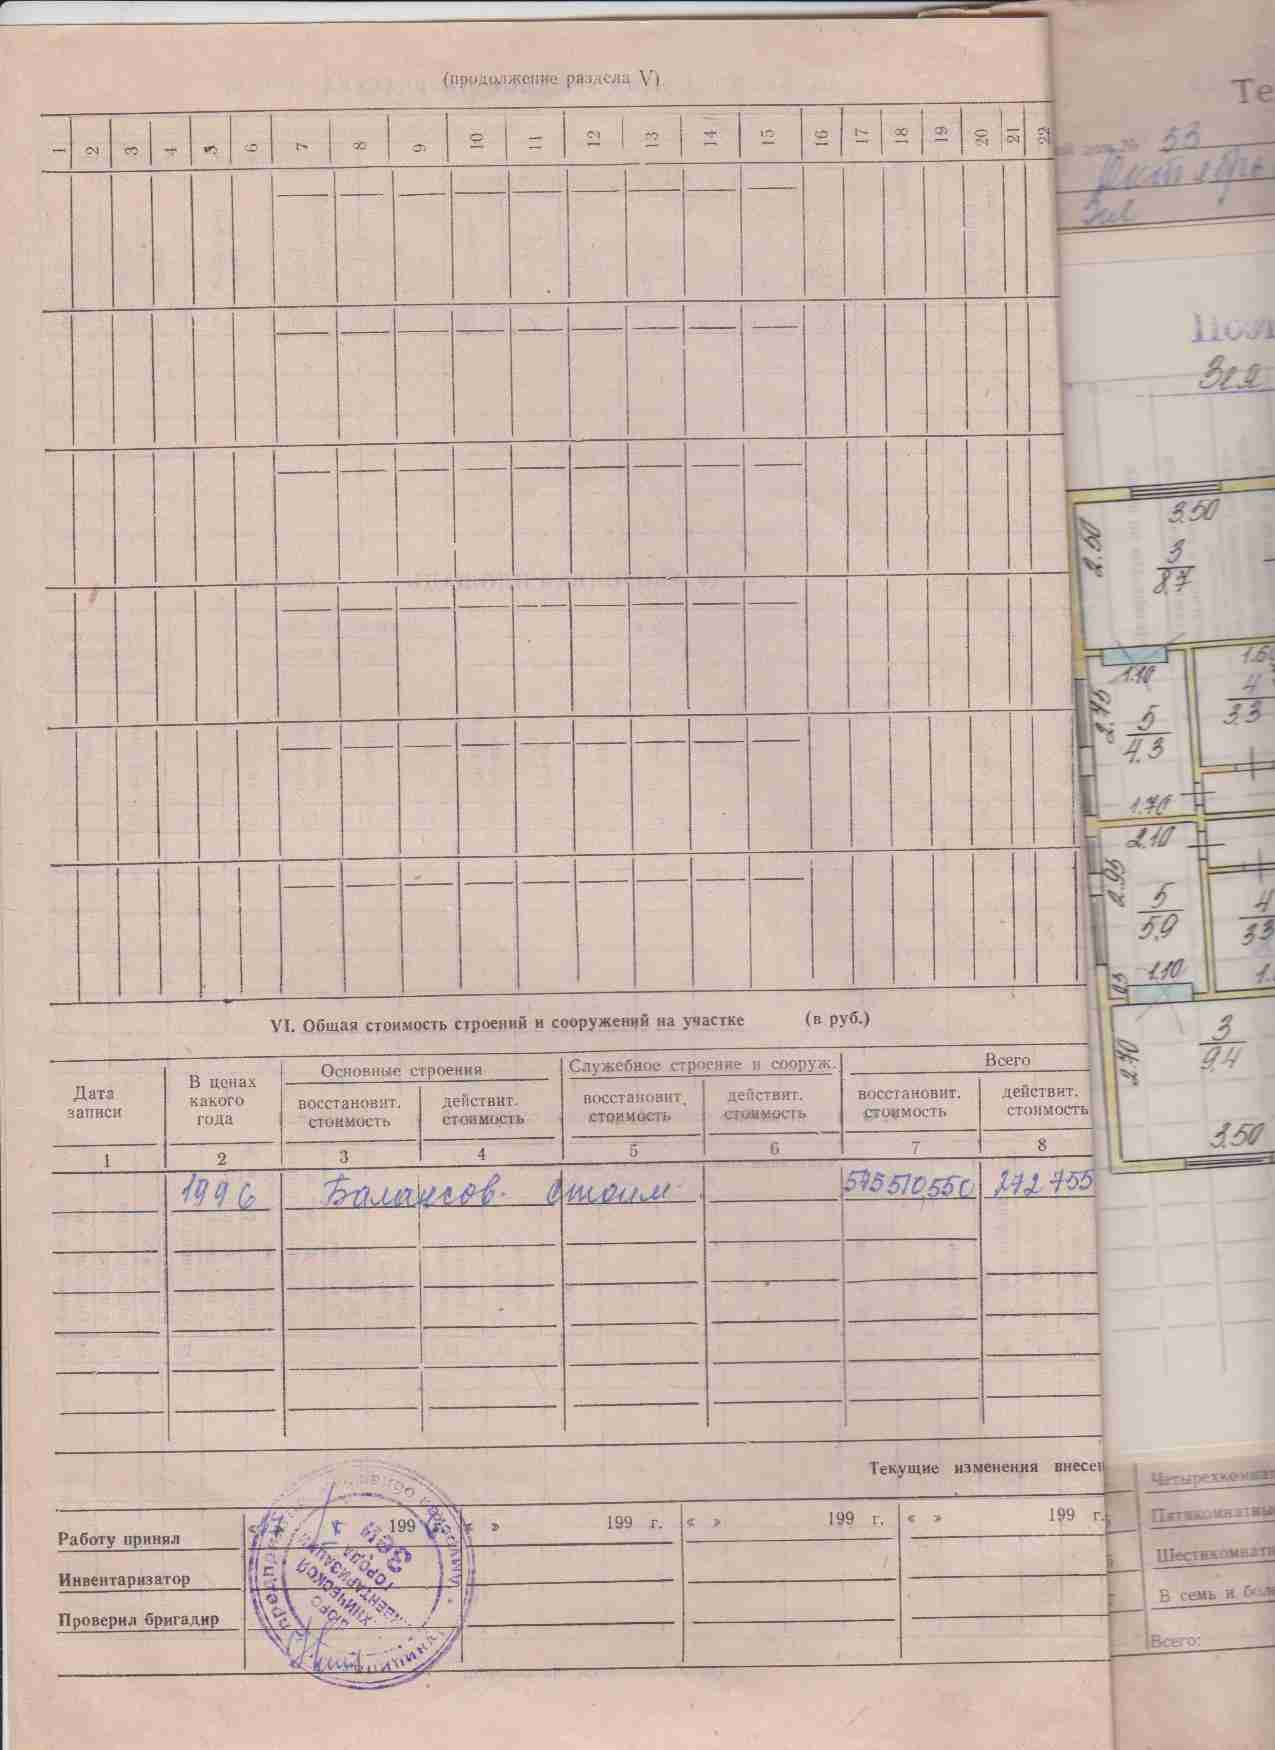 (продолжение раздела V)
1 2 3 4 5 6 7 8 9 10 11 12 13 14 15 16 17 18 19 20 21 22
VI. Общая стоимость строений и сооружений на участке (в руб.)
Дата записи
В ценах какого года
Основные строения
Служебное строение и сооруж.
Всего
восстановит. стоимость
действит. стоимость
восстановит. стоимость
действит. стоимость
восстановит. стоимость
действит. стоимость
1 2 3 4 5 6 7 8
1996 Балансов. стоим 575510550 272755
Текущие изменения внесен
« » 199 г. « » 199 г. « » 199 г.
Работу принял
Инвентаризатор
Проверил бригадир
БЮРО
ТЕХНИЧЕСКОЙ
ИНВЕНТАРИЗАЦИИ
ГОРОДА
ЗЕИ
Те
53
Зея
3.50
2.50
3
8.7
1.10
2.75
5
4.3
4
3.3
1.70
2.10
2.95
5
5.9
4
3.3
1.10
3
9.4
2.70
3.50
Четырехкомнат
Пятикомнатные
Шестикомнатн
В семь и бол
Всего: